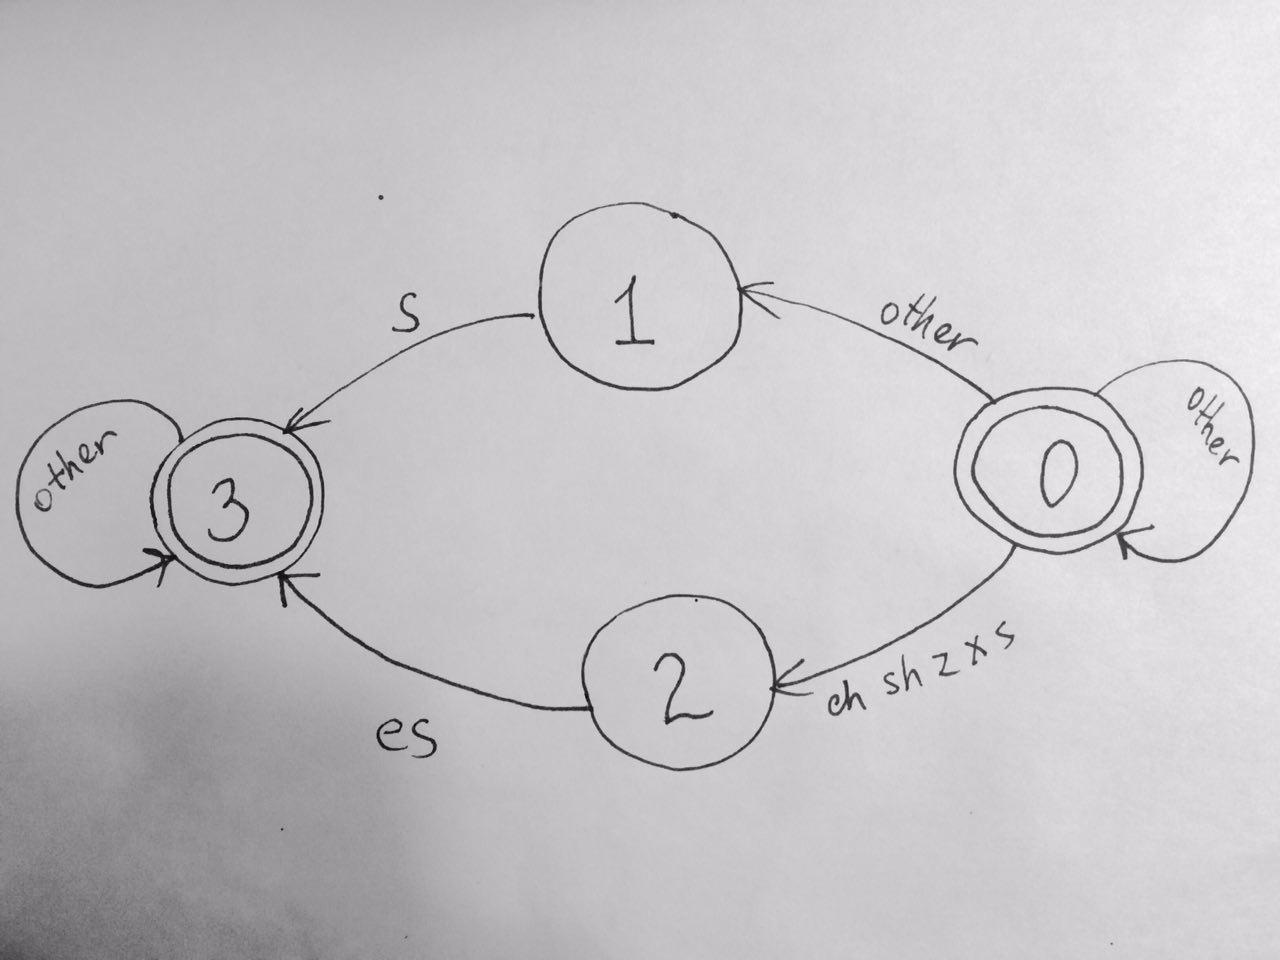 S
1
other
other
other
3
0
2
ch sh z x s
es